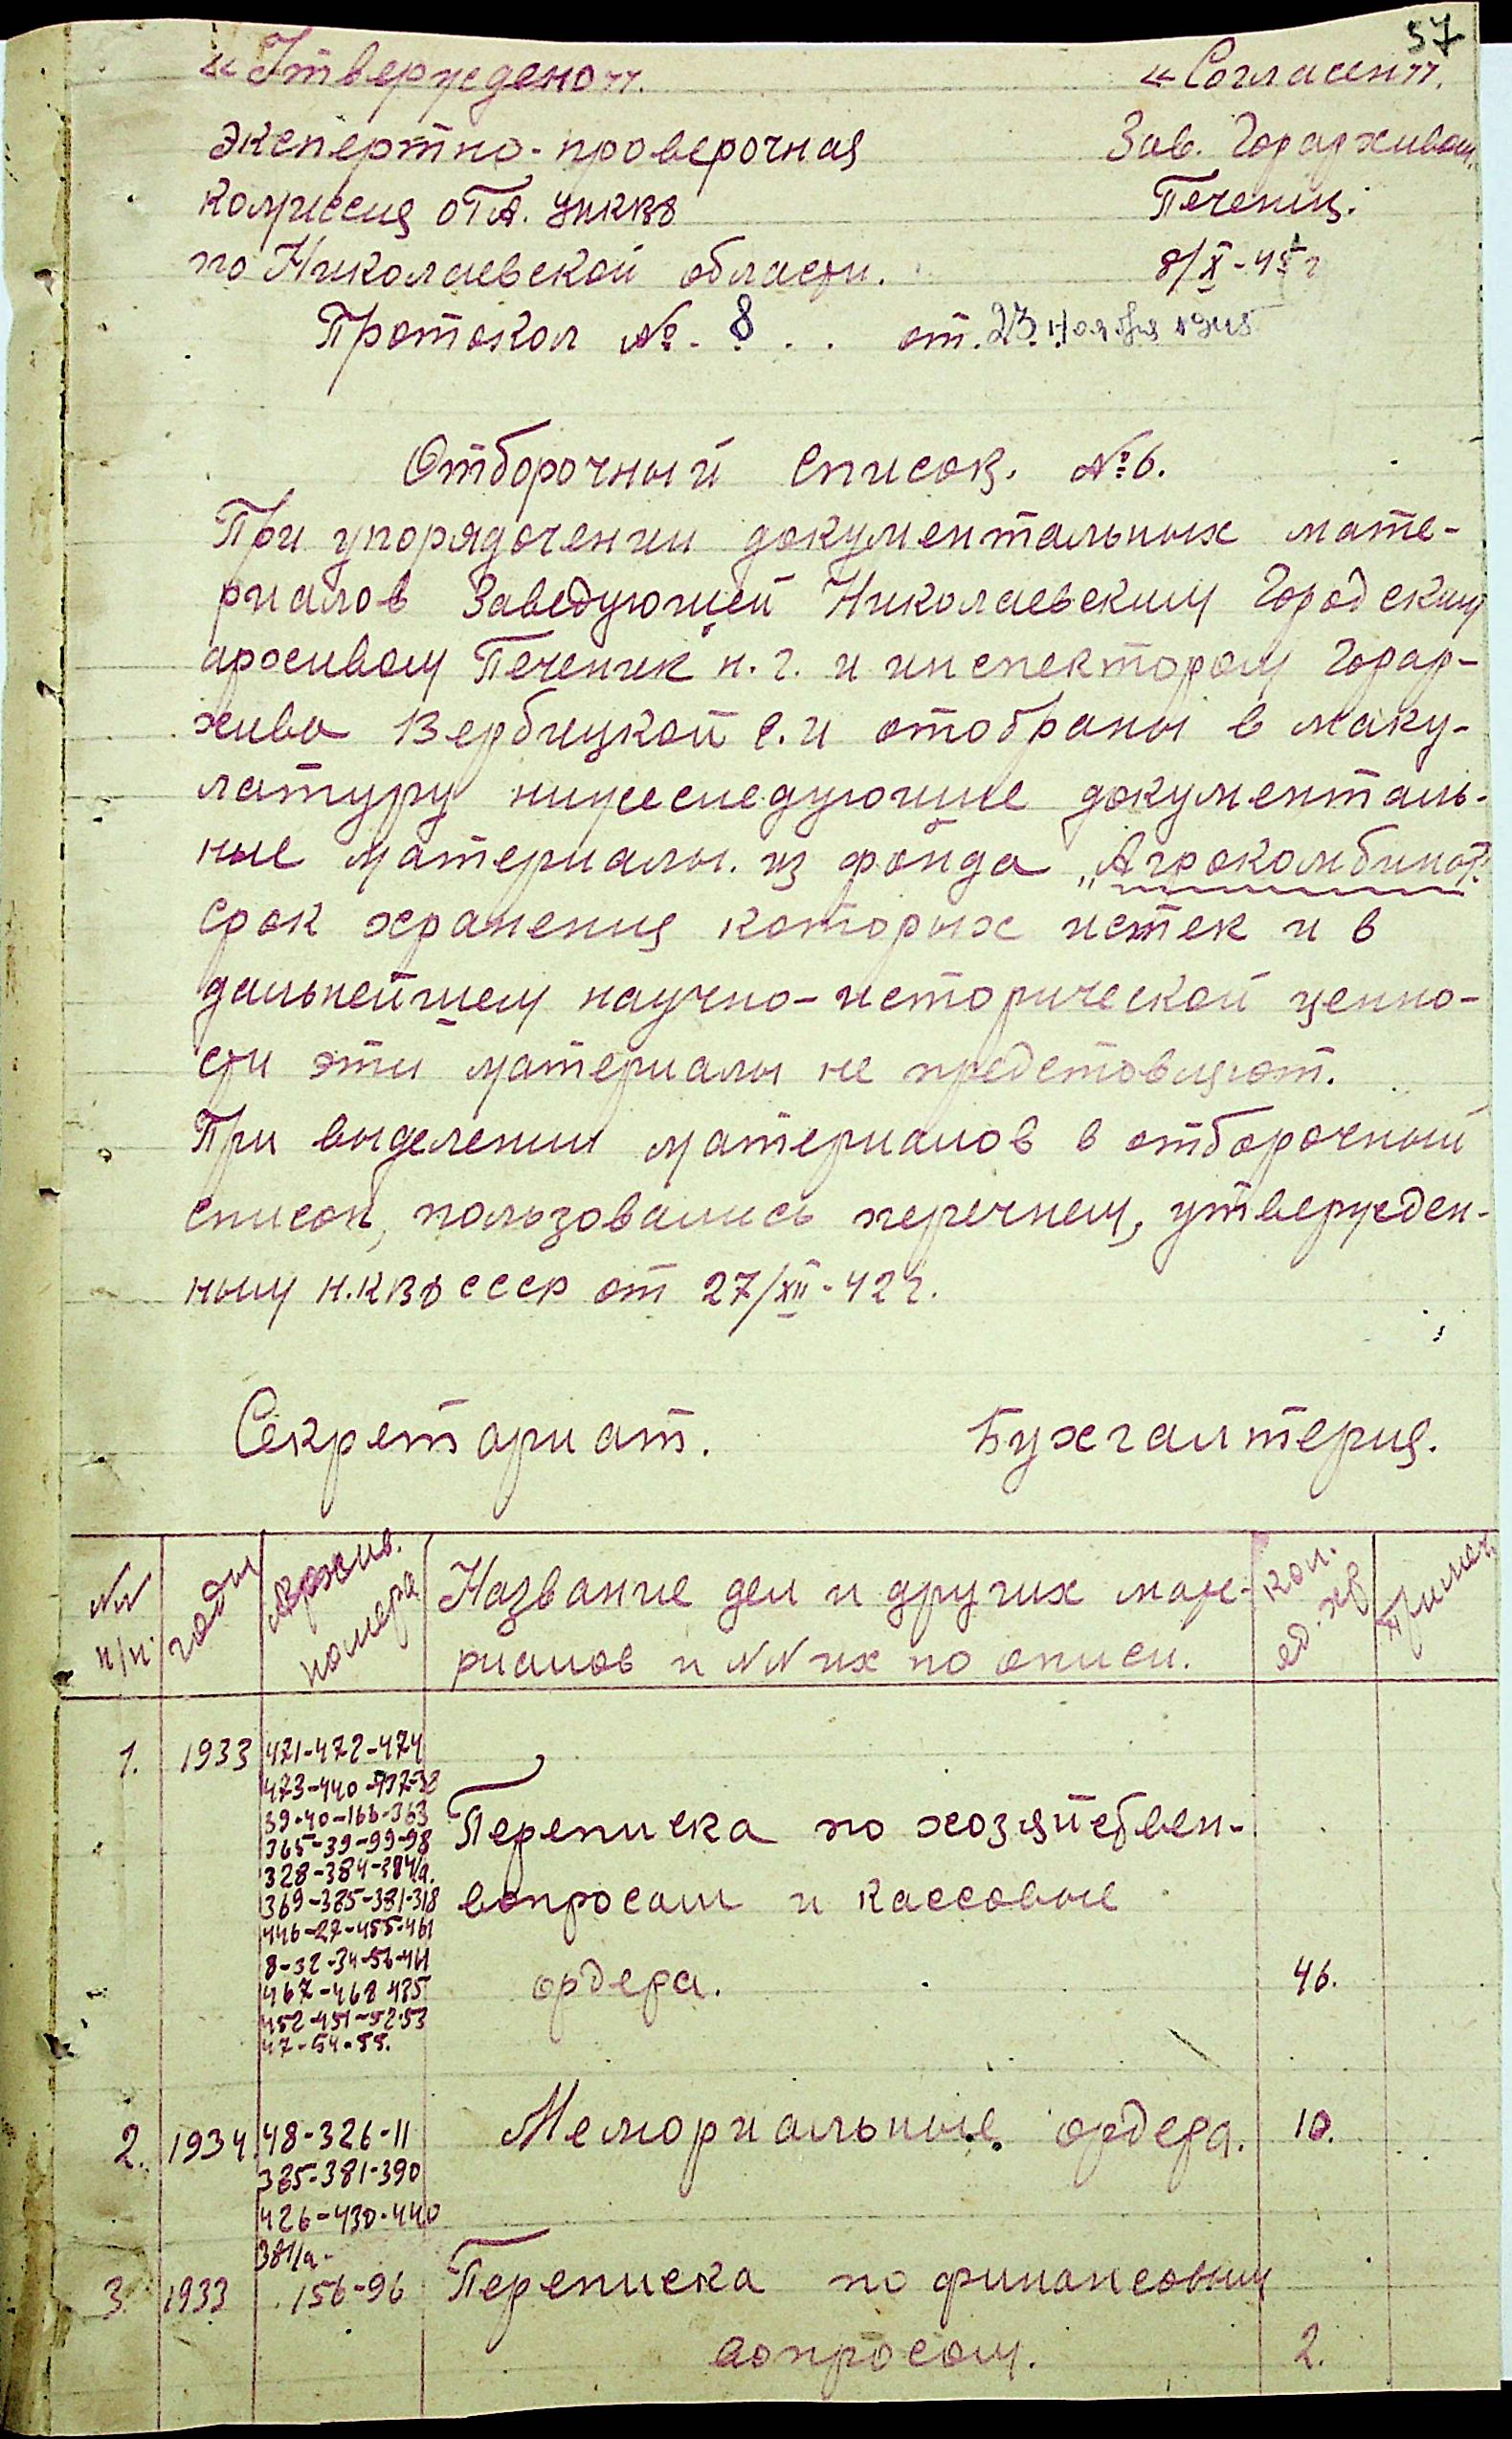 57
«Утверждено».
«Согласен».
Экспертно-проверочная
Зав. Горархивом
комиссия ОГА. УНКВД
Печеник.
по Николаевской области.
8/X-45 г
Протокол №. 8 . . от. 23 ноября 1945
Отборочный список. №6.
При упорядочении документальных мате-
риалов Заведующей Николаевским Городским
архивом Печеник н.г. и инспектором Горар-
хива Вербицкой е.и отобраны в маку-
латуру нижеследующие документаль-
ные материалы. из фонда „Агрокомбинат"
срок хранения которых истек и в
дальнейшем научно-исторической ценно-
сти эти материалы не представляют.
При выделении материалов в отборочный
список, пользовались перечнем, утвержден-
ным Н.КВД СССР от 27/XII-42г.
Секретариат. Бухгалтерия.
NN п/п.
годы
Архив. номера
Название дел и других мате-
риалов и NN их по описи.
кол. ед. хр
Примеч.
1. 1933 471-472-474
473-440-437-38
39-40-166-363
365-39-99-98
328-384-384/а.
369-385-381-318
446-27-455-461
8-32-34-56-461
467-468-435
452-451-52-53
47-54-55.
Переписка по хозяйствен-
вопросам и кассовые
ордера. 46.
2. 1934. 48-326-11 Мемориальные ордера. 10.
385-381-390
426-430-440
381/а-
3. 1933 156-96 Переписка по финансовым
вопросам. 2.